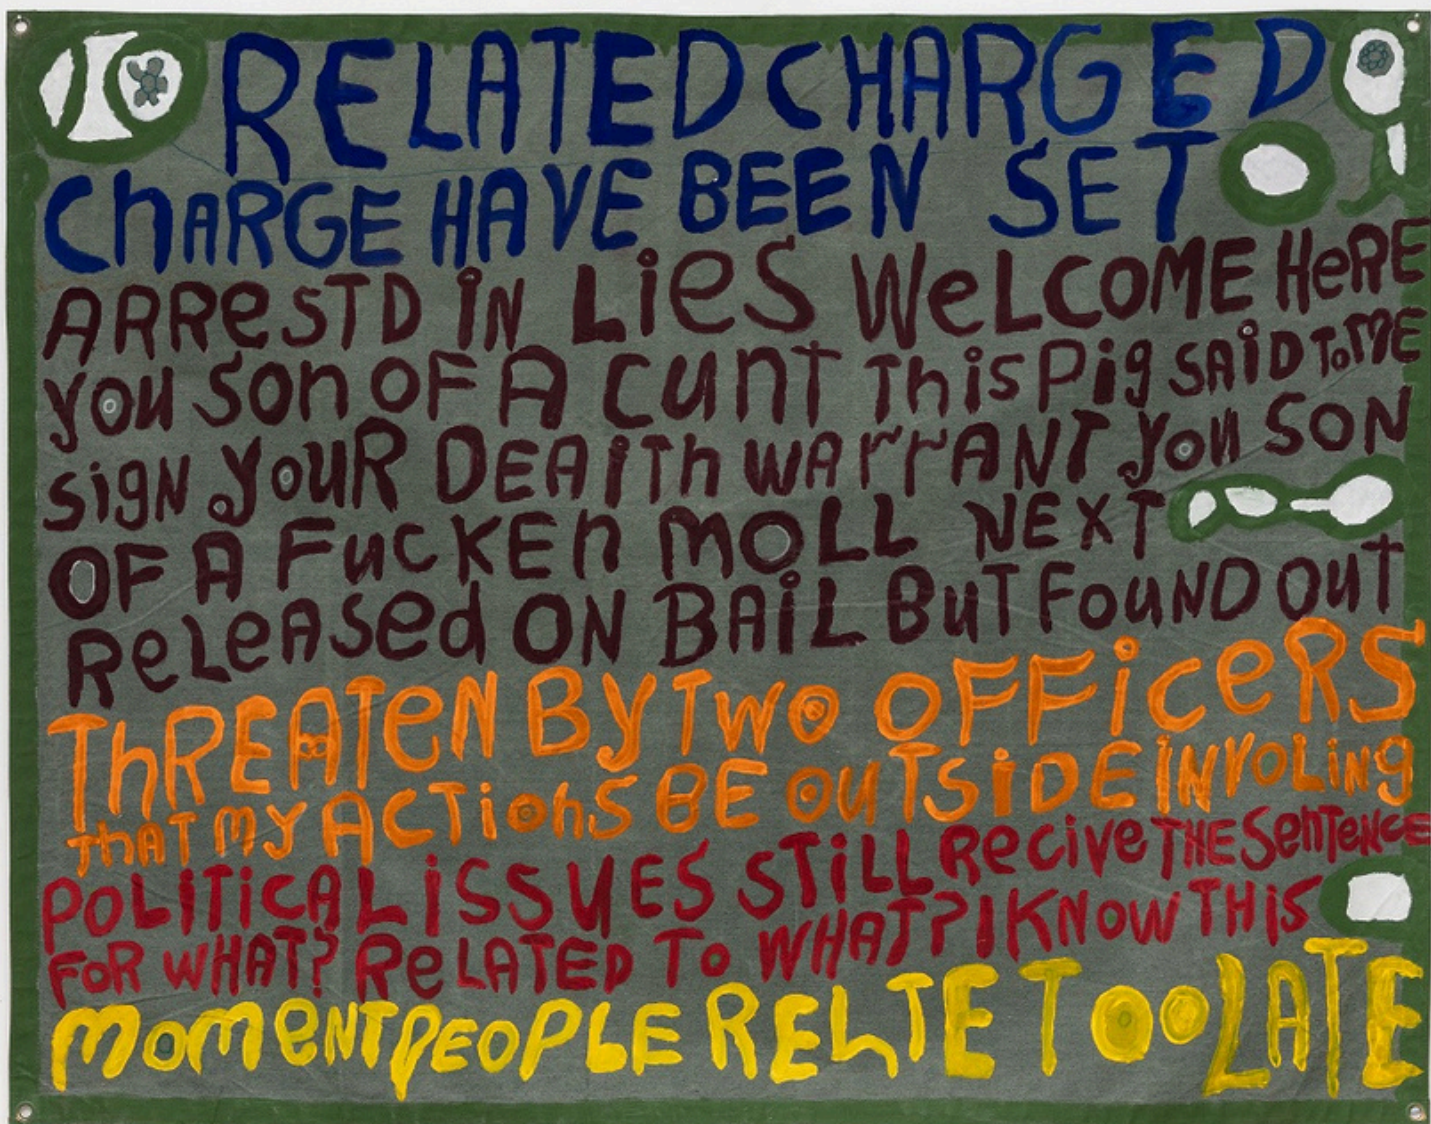 RELATED CHARGED
ChARGE HAVE BEEN SET
ARReSTD iN LieS WeLCOME HeRE
you Son OF A CunT ThisPig SAiD ToME
sigN youR DEAiTh WARrANT you SON
OF A FucKEn MOLL NEXT
ReLeASed ON BAiL BuT FouND OuT
ThREATeN By Two OFFiceRS
thAT My ACTiohS BE OuTSiDE INVOLiNg
POLiTiCAL iSSUES STiLL Recive THE SenTENCE
FOR WHAT? ReLATED To WHAT? I KNow THiS
momeNT PEOPLE RELTE TOO LATE